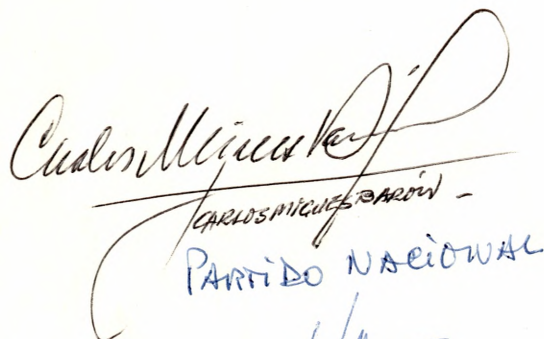 Carlos Migues Barón
CARLOS MIGUES BARÓN -
PARTIDO NACIONAL